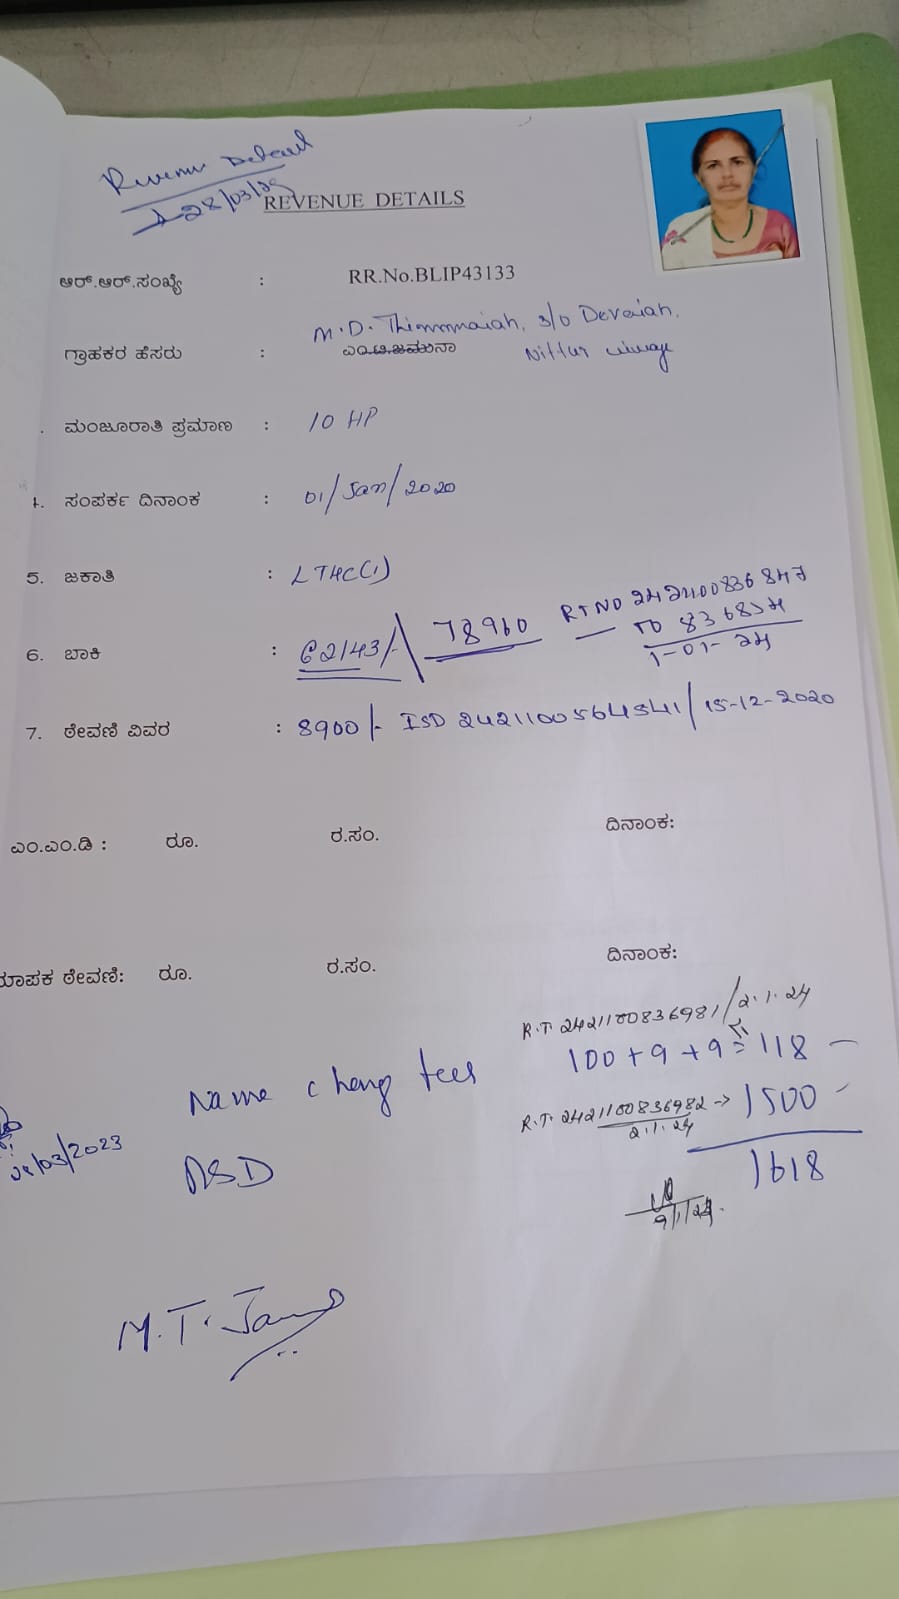 Revenue Detail
28/03/25
REVENUE DETAILS
ಆರ್.ಆರ್.ಸಂಖ್ಯೆ : RR.No.BLIP43133
M.D. Thimmmaiah, S/o Devaiah,
ಗ್ರಾಹಕರ ಹೆಸರು : ಎಂ.ಟಿ.ಜಮುನಾ Nittur village
ಮಂಜೂರಾತಿ ಪ್ರಮಾಣ : 10 HP
4. ಸಂಪರ್ಕ ದಿನಾಂಕ : 01/Jan/2020
5. ಜಕಾತಿ : LT4C(1)
6. ಬಾಕಿ : 62143/- 78960 RTNO 2421100836847
TO 836854
1-01-24
7. ಠೇವಣಿ ವಿವರ : 8900/- ISD 2421100564541/15-12-2020
ಎಂ.ಎಂ.ಡಿ : ರೂ. ರ.ಸಂ. ದಿನಾಂಕ:
ಮಾಪಕ ಠೇವಣಿ: ರೂ. ರ.ಸಂ. ದಿನಾಂಕ:
R.T. 2421100836981/2.1.24
Name Chang fees 100+9+9=118
R.T. 2421100836982 → 1500
2.1.24
03/2023
ASD 1618
9/1/24.
M.T. Jam